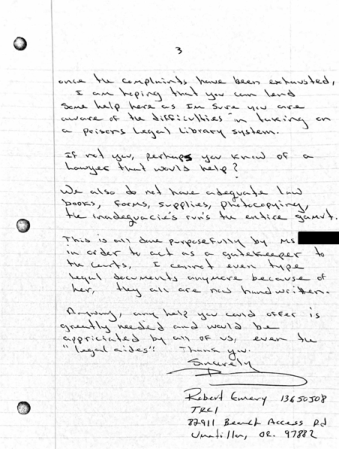 3
once the complaints have been exhausted,
I am hoping that you can lend
some help here as Im sure you are
aware of the difficulties in taking on
a prisons Legal Library system.
If not you, perhaps you know of a
Lawyer that would help?
We also do not have adequate law
books, forms, supplies, photocopying,
the inadequacie's run's the entire gamut.
This is all done purposefully by Ms.
in order to act as a gatekeeper to
the courts, I cannot even type
legal documents anymore because of
her, they all are now handwritten.
Anyway, any help you could offer is
greatly needed and would be
appriciated by all of us, even the
"legal aides". Thank you.
Sincerely
Robert Emery 13650508
TRCI
82911 Beach Access Rd
Umatilla, OR. 97882